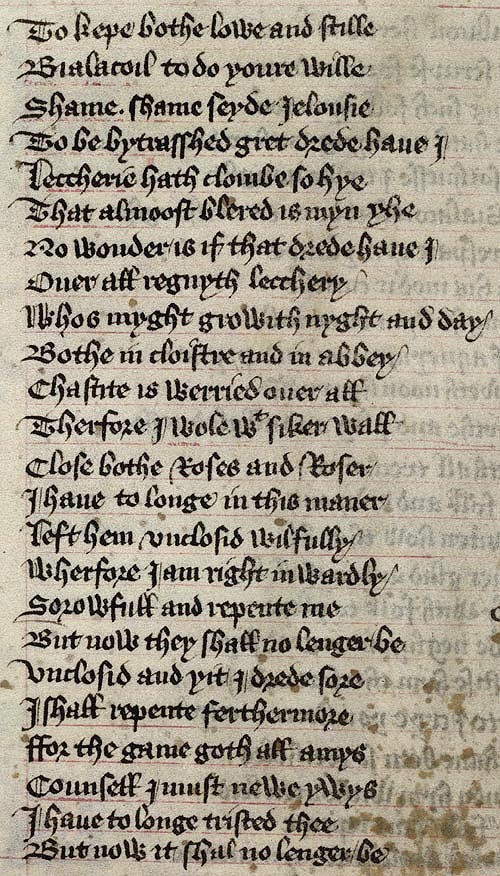 To kepe bothe lowe and stille
Bialacoil to do youre wille
Shame. shame seyde Jelousie
To be bytrasshed gret drede haue I
Leccherie hath clombe so hye
That almoost blered is myn yhe
No wonder is if that drede haue I
Ouer all regnyth lecchery
Whos myght growith nyght and day
Bothe in cloistre and in abbey
Chastite is werried ouer all
Therfore I wole wt siker wall
Close bothe Roses and Roser
I haue to longe in this maner
Left hem vnclosid wilfully
Wherfore I am right inwardly
Sorowfull and repente me
But now they shall no lenger be
Vnclosid and yit I drede sore
I shall repente ferthermore
ffor the game goth all amys
Counsell I must newe ywys
I haue to longe tristed thee
But now it shal no lenger be